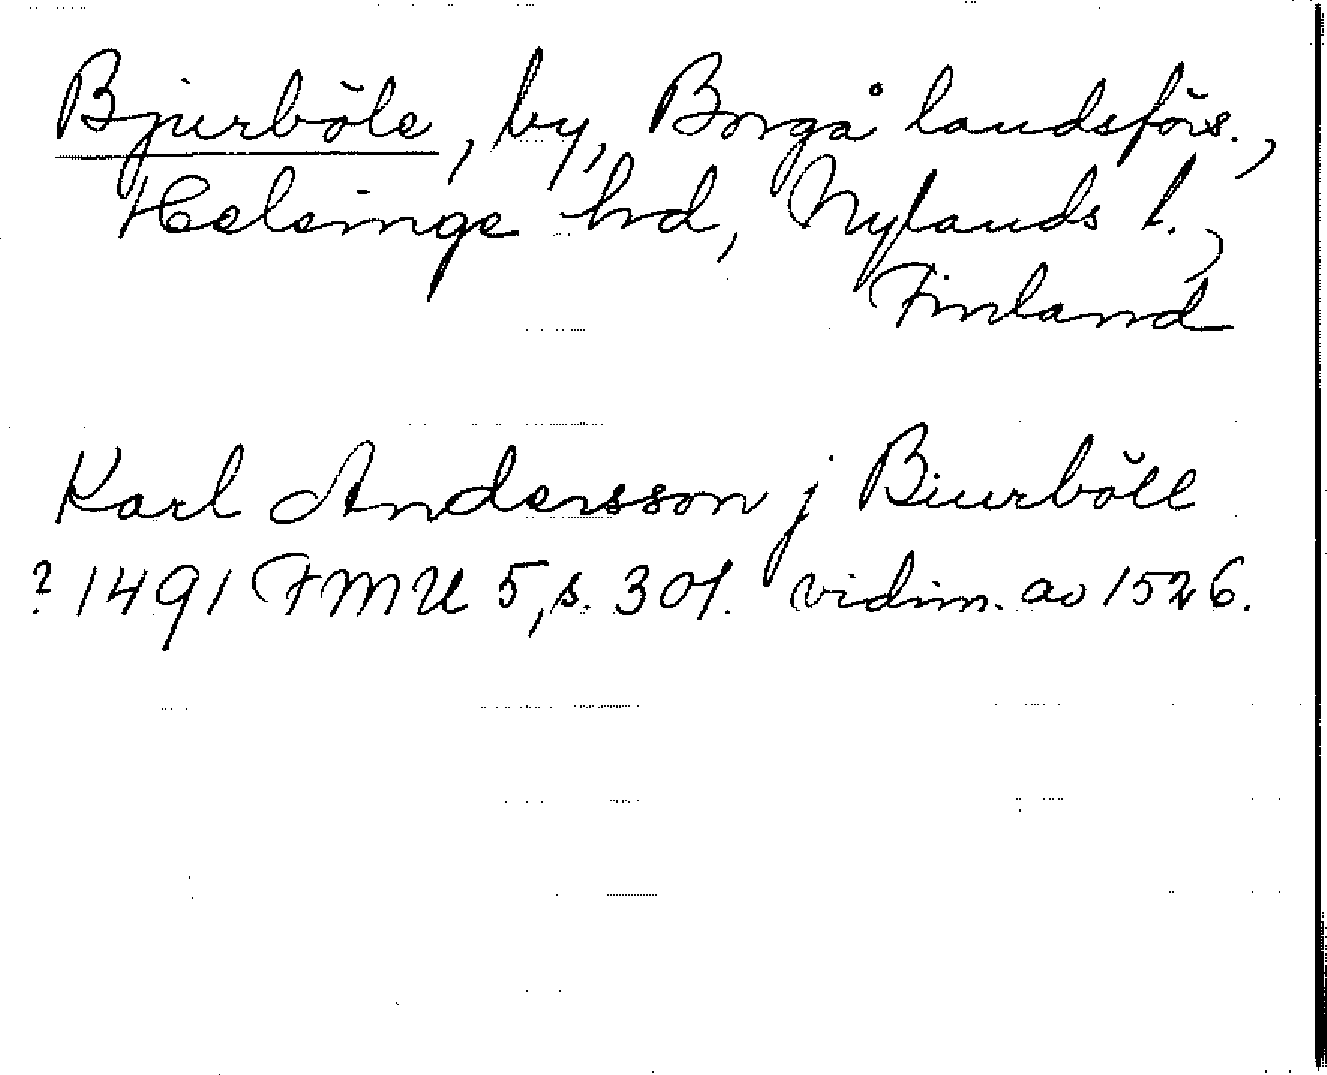 Bjurböle, by, Borgå landsförs.,
Helsinge hrd, Nylands l.,
Finland
Karl Andersson j Biurböle
? 1491 FMU 5, s. 301. vidim. av 1526.